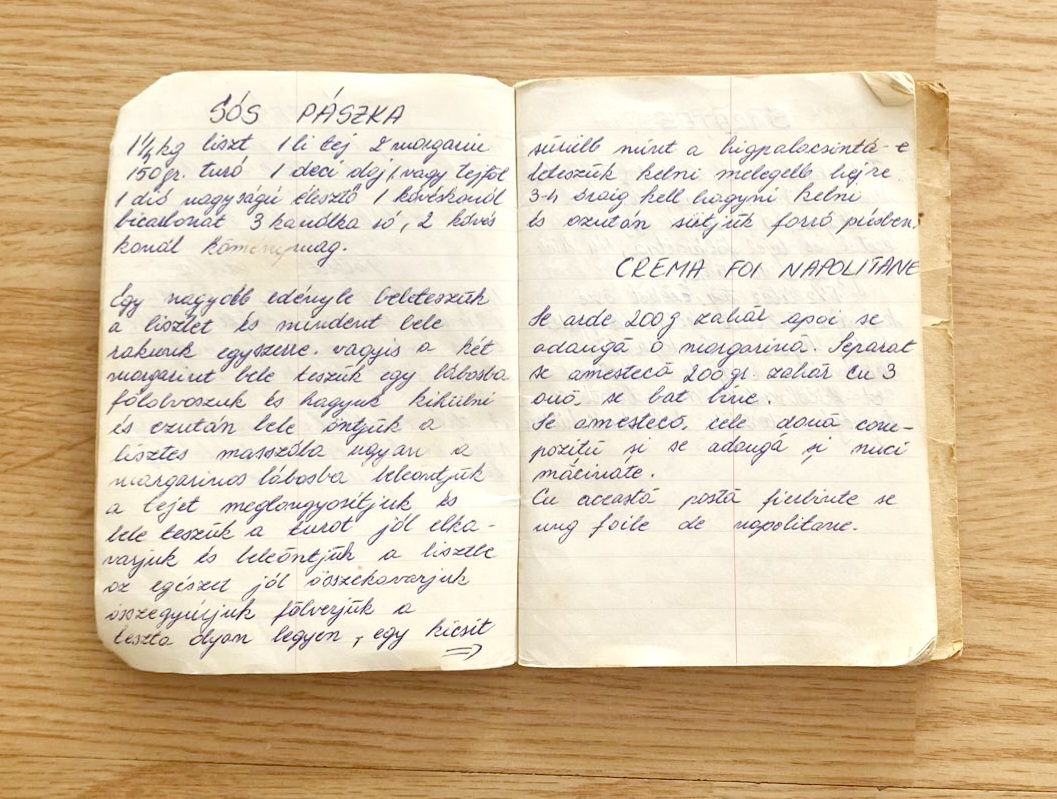 SÓS PÁSZKA
1 1/4 kg liszt 1 li tej 2 margarin
150 gr. turó 1 deci olaj, vagy tejföl
1 dió nagyságú élesztő 1 kávéskanál
bicarbonát 3 kanálka só, 2 kávés
kanál köménymag.
Egy nagyobb edénybe beleteszük
a lisztet és mindent bele
rakunk egyszerre. vagyis a két
margarint bele teszük egy lábosba
fölolvoszuk és hagyuk kihülni
és ezután bele öntjük a
lisztes masszába ugyan a
margarinos lábosba beleöntjük
a tejet meglangyosítjuk és
bele teszük a turót jól elka-
varjuk és beleöntjük a lisztbe
az egészet jól összekavarjuk
összegyúrjuk fölverjük a
teszta olyan legyen, egy kicsit
sürübb mint a higpalacsintá-e
leteszük kelni melegebb hejre
3-4 óráig kell hagyni kelni
és azután sütjük forró plében.
CREMA FOI NAPOLITANE
Se arde 200 g zahăr apoi se
adaugă o margarină. Separat
se amestecă 200 gr. zahăr cu 3
ouă, se bat bine.
Se amestecă, cele două com-
pozitii și se adaugă și nuci
măcinate.
Cu această pastă fierbinte se
ung foile de napolitane.